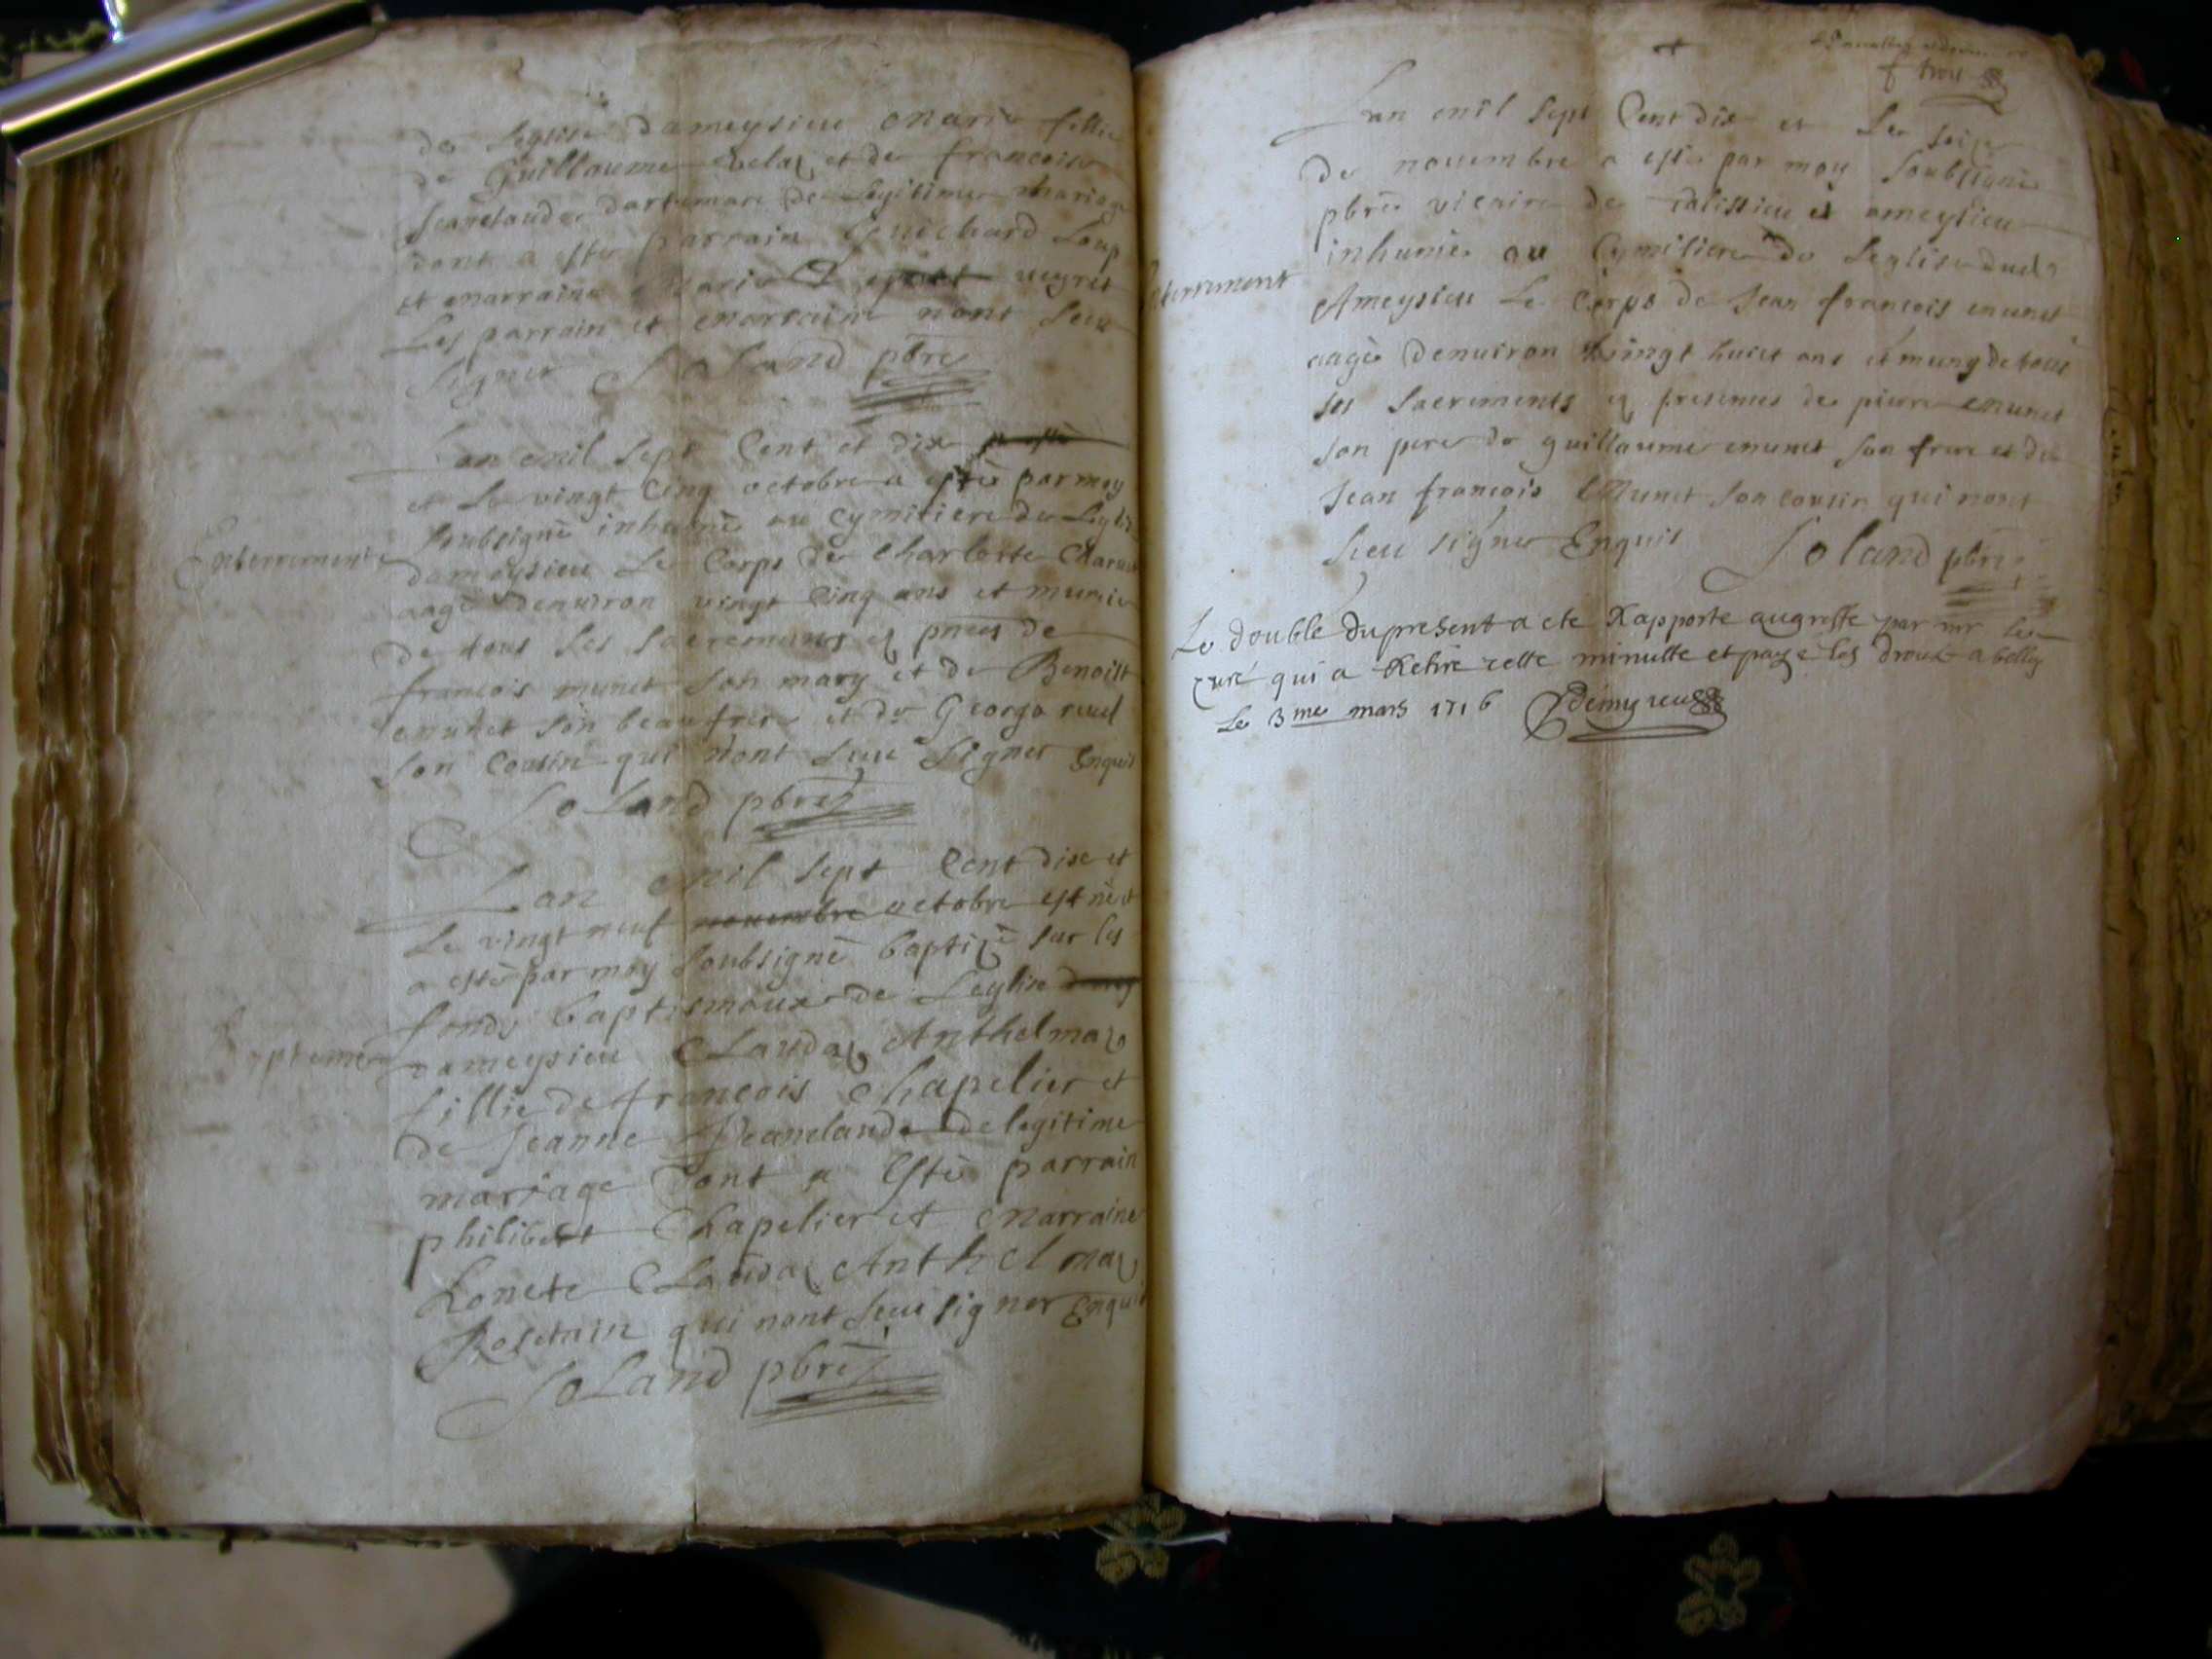 de Leglise dameysieu Marie fillie
de Guillaume velaz et de francoise
Jeanclaude dartemare de Legitime mariage
dont a esté parrain Guichard Loup
et Marraine Marie veyret
Les parrain et Marraine nont sceu
signer Soland pbre
Lan Mil sept Cent et dix
et Le vingt cinq octobre a esté par moy
Enterrement
soubsigné inhumé au Cymitiere de Leglise
dameysieu Le Corps de Charlotte
aagé denuiron vingt Cinq ans et munie
de tous les sacrements et pnces de
francois munet son mary et de Benoist
Munet son beaufrere et de George
son Cousin qui nont sceu signer Enquis
Soland pbre
Lan Mil sept Cent dix et
Le vingt neuf novembre octobre est né et
a esté par moy soubsigné baptizé sur les
fonds baptismaux de Leglise
Bapteme
dameysieu Claudaz Anthelmaz
fillie de francois Chapelier et
de Jeanne Jeanclaude de legitime
mariage dont a Esté parrain
philibert Chapelier et Marraine
honete Claudaz Anthelmaz
qui nont sceu signer Enquis
Soland pbre
Lan Mil sept Cent dix et Le seize
de nouembre a esté par moy soubsigné
pbre vicaire de Talissieu et ameysieu
Enterrement
inhumé au Cymitiere de Leglise dud
Ameysieu Le Corps de Jean francois Munet
aagé denuiron vingt huict ans et muny de tous
ses sacrements et presences de pierre Munet
son pere de guillaume Munet son frere et de
Jean francois Munet son cousin qui nont
sceu signer Enquis Soland pbre
Le double du present acte Rapporte au greffe par mr le
curé qui a Retiré cette minutte et payé les droits a belley
Le 3me mars 1716